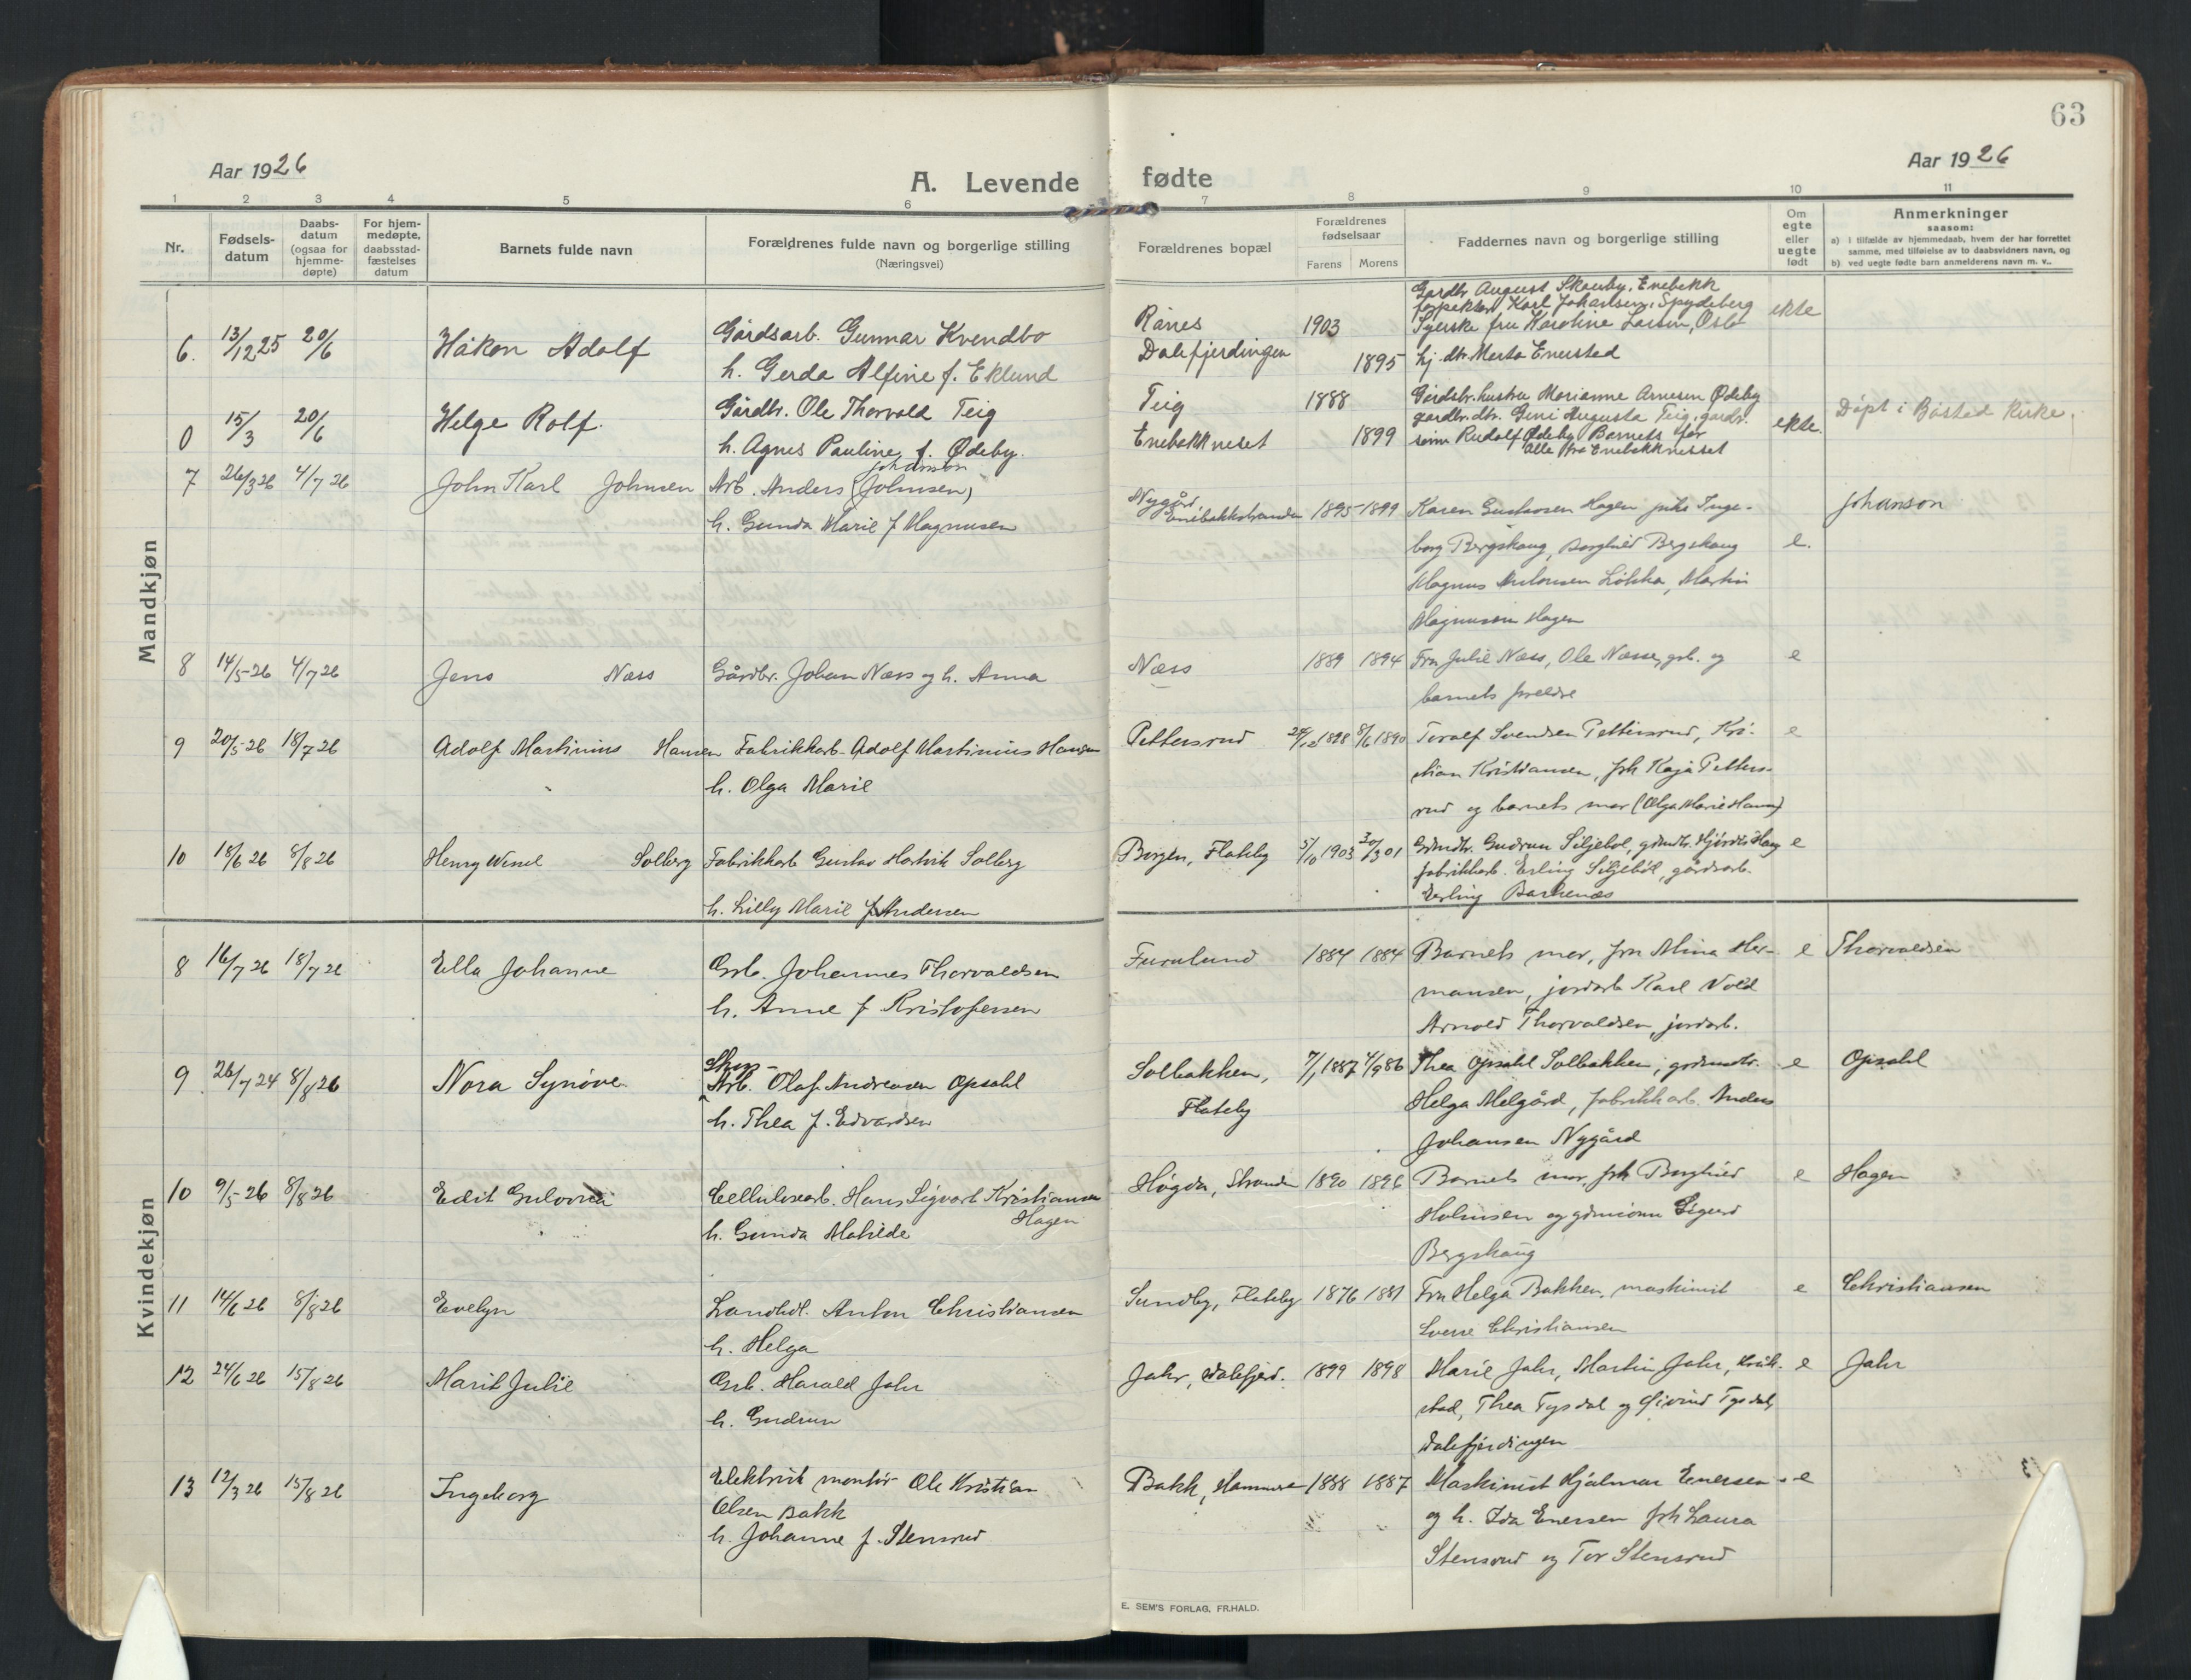 63
Aar 1926
A. Levende fødte
Aar 1926
1 2 3 4 5 6 7 8 9 10 11
Nr.
Fødsels-
datum
Daabs-
datum
(ogsaa for
hjemme-
døpte)
For hjem-
medøpte,
daabsstad-
fæstelses
datum
Barnets fulde navn
Forældrenes fulde navn og borgerlige stilling
(Næringsvei)
Forældrenes bopæl
Forældrenes
fødselsaar
Farens Morens
Faddernes navn og borgerlige stilling
Om
egte
eller
uegte
født
Anmerkninger
saasom:
a) i tilfælde av hjemmedaab, hvem der har forrettet
samme, med tilføielse av to daabsvidners navn, og
b) ved uegte fødte barn anmelderens navn m. v..
Mandkjøn
6. 13/12 25 20/6 Håkon Adolf
Gårdsarb. Gunnar Kvendbo
h. Gerda Alfine f. Eklund
Rånes 1903
Dalefjerdingen 1895
Gardbr. August Skauby, Enebekk
Karl Johanson, Spydeberg
Syerske fru Karoline Larsen, Oslo
hj. dtr. Merta Enersted
ekte
0 15/3 20/6 Helge Rolf.
Gårdbr. Ole Thorvald Teig
h. Agnes Pauline f. Ødeby.
Teig 1888
Enebakkneset 1899
Gårdsbr. hustru Marianne Arnesen Ødeby
gardbr. dtr. Gini Augusta Teig, gardbr.
sønn Rudolf Ødeby Barnets far
alle fra Enebakknesset
ekte.
Døpt i Båstad kirke.
7 26/3 26 4/7 26 John Karl Johnsen
Johanson
Arb. Anders (Johnsen)
h. Gunda Marie f Magnusen
Nygård
Enebakkstranden 1895 1899
Karen Gustavsen Hagen, Inge-
borg Bergskaug, Borghild Bergskaug
Magnus Løkka, Martin
Magnusen Hagen
e.
Johanson
8 14/5-26 4/7 26 Jens Næss
Gårdbr. Johan Næss og h. Anna
Næss 1889 1894
Fru Julie Næss, Ole Næss, grb. og
barnets foreldre
e
9 20/5-26 18/7 26 Adolf Martinius Hansen
Fabrikkarb. Adolf Martinius Hansen
h. Olga Marie
Pettersrud 29/12 1898 8/6 1890
Toralf Svendsen Pettersrud, Kri-
stian Kristiansen, frk Kaja Petters-
rud og barnets mor (Olga Marie Hansen)
e
10 18/6 26 8/8 26 Henry Wessel Solberg
Fabrikkarb Gustav Hartvik Solberg
h. Lilly Marie f Andersen
Borgen, Flateby 5/10 1903 30/3 01
Grdmdtr. Gudrun Siljebøl, grdmdtr. Hjørdis Haug
fabrikkarb. Erling Siljebøl, gårdsarb.
Erling Barkenæs
e
Kvindekjøn
8 16/7 26 18/7 26 Ella Johanne
Grb. Johannes Thorvaldsen
h. Anne f Kristofersen
Furulund 1884 1884
Barnets mor, fru Mina Her-
mansen, jordarb Karl Vold
Arnold Thorvaldsen, jordarb.
e Thorvaldsen
9. 26/7 24 8/8 26 Nora Synöve.
Skogs-
Arb. Olaf Andreasen Opsahl
h. Thea f. Edvardsen
Solbakken,
Flateby
7/1 1887 4/9 86
Thea Opsahl Solbakken, grdmdtr.
Helga Melgård, fabrikkarb. Anders
Johansen Nygård
e Opsahl
10 9/5-26 8/8 26 Edit Gulovna
Cellulosearb. Hans Sigvart Kristiansen
Hagen
h. Gunda Mathilde
Høgda, Stranden 1890 1896
Barnets mor, frk Borghild
Holmsen og grdmsønn Sigurd
Bergskaug
e Hagen
11 14/6 26 8/8 26 Evelyn
Landhdl. Anton Christiansen
h. Helga
Sundby, Flateby 1876 1881
Fru Helga Bakken, maskinist
Sverre Christiansen
e Christiansen
12 24/6 26 15/8 26 Marit Julie
Grb. Harald Jahr
h. Gudrun
Jahr, Dalefjerd. 1899 1898
Marie Jahr, Martin Jahr, Kråk-
stad, Thea Tysdal og Øivind Tysdal,
Dalefjerdingen
e Jahr
13 12/3 26 15/8 26 Ingeborg
Elektrisk montör Ole Kristian
Olsen Bakk
h. Johanne f. Stensrud
Bakk, Hammeren 1888 1887
Maskinist Hjalmar Enersen
og h. Ida Enersen frk Laura
Stensrud og Tor Stensrud
e
E. SEM'S FORLAG, FR.HALD.